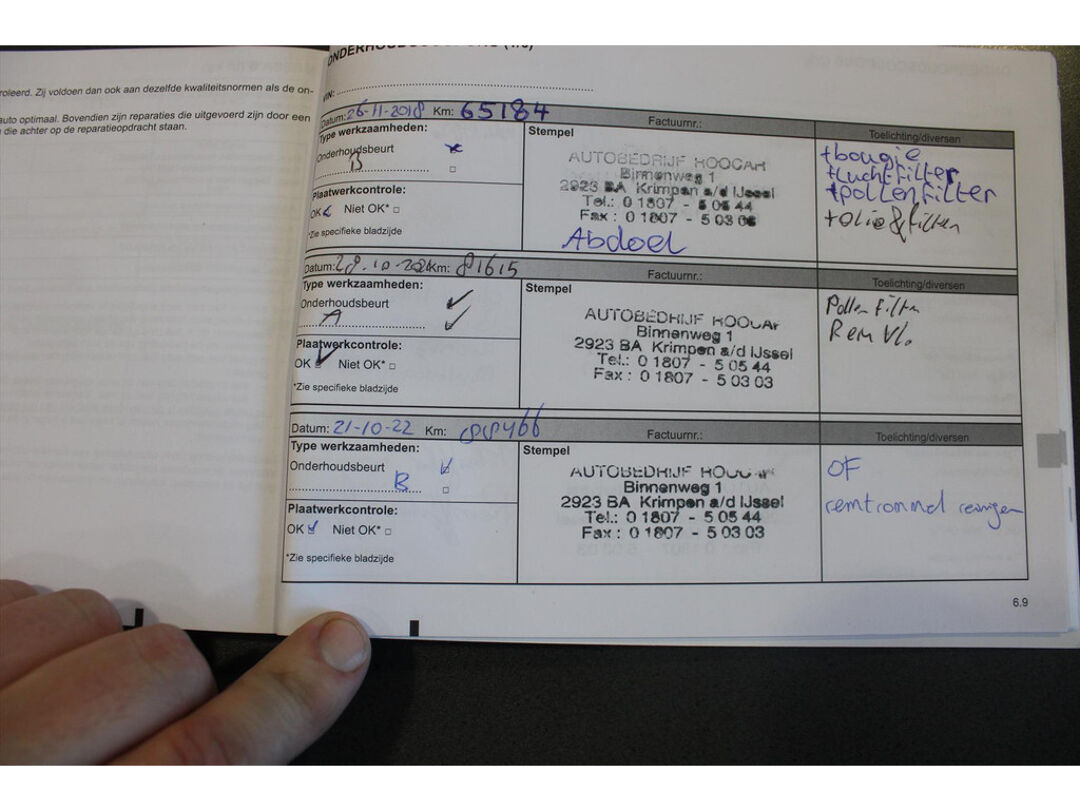 roleerd. Zij voldoen dan ook aan dezelfde kwaliteitsnormen als de on-
auto optimaal. Bovendien zijn reparaties die uitgevoerd zijn door een
die achter op de reparatieopdracht staan.
VIN:
Datum: 26-11-2018 Km: 65184 Factuurnr.: Toelichting/diversen
Type werkzaamheden:
Onderhoudsbeurt
B
Plaatwerkcontrole:
OK Niet OK*
*Zie specifieke bladzijde
Stempel
AUTOBEDRIJF HOOGAR
Binnenweg 1
2923 BA Krimpen a/d IJssel
Tel.: 0 1807 - 5 05 44
Fax : 0 1807 - 5 03 03
Abdoel
+bougie
+luchtfilter
+pollenfilter
+olie&filter
Datum: 28.10-2021 Km: 81615 Factuurnr.: Toelichting/diversen
Type werkzaamheden:
Onderhoudsbeurt
A
Plaatwerkcontrole:
OK Niet OK*
*Zie specifieke bladzijde
Stempel
AUTOBEDRIJF HOOGAR
Binnenweg 1
2923 BA Krimpen a/d IJssel
Tel.: 0 1807 - 5 05 44
Fax : 0 1807 - 5 03 03
Pollen filter
Rem Vl.
Datum: 21-10-22 Km: 88466 Factuurnr.: Toelichting/diversen
Type werkzaamheden:
Onderhoudsbeurt
B
Plaatwerkcontrole:
OK Niet OK*
*Zie specifieke bladzijde
Stempel
AUTOBEDRIJF HOOGAR
Binnenweg 1
2923 BA Krimpen a/d IJssel
Tel.: 0 1807 - 5 05 44
Fax : 0 1807 - 5 03 03
OF
remtrommel reinigen
6.9